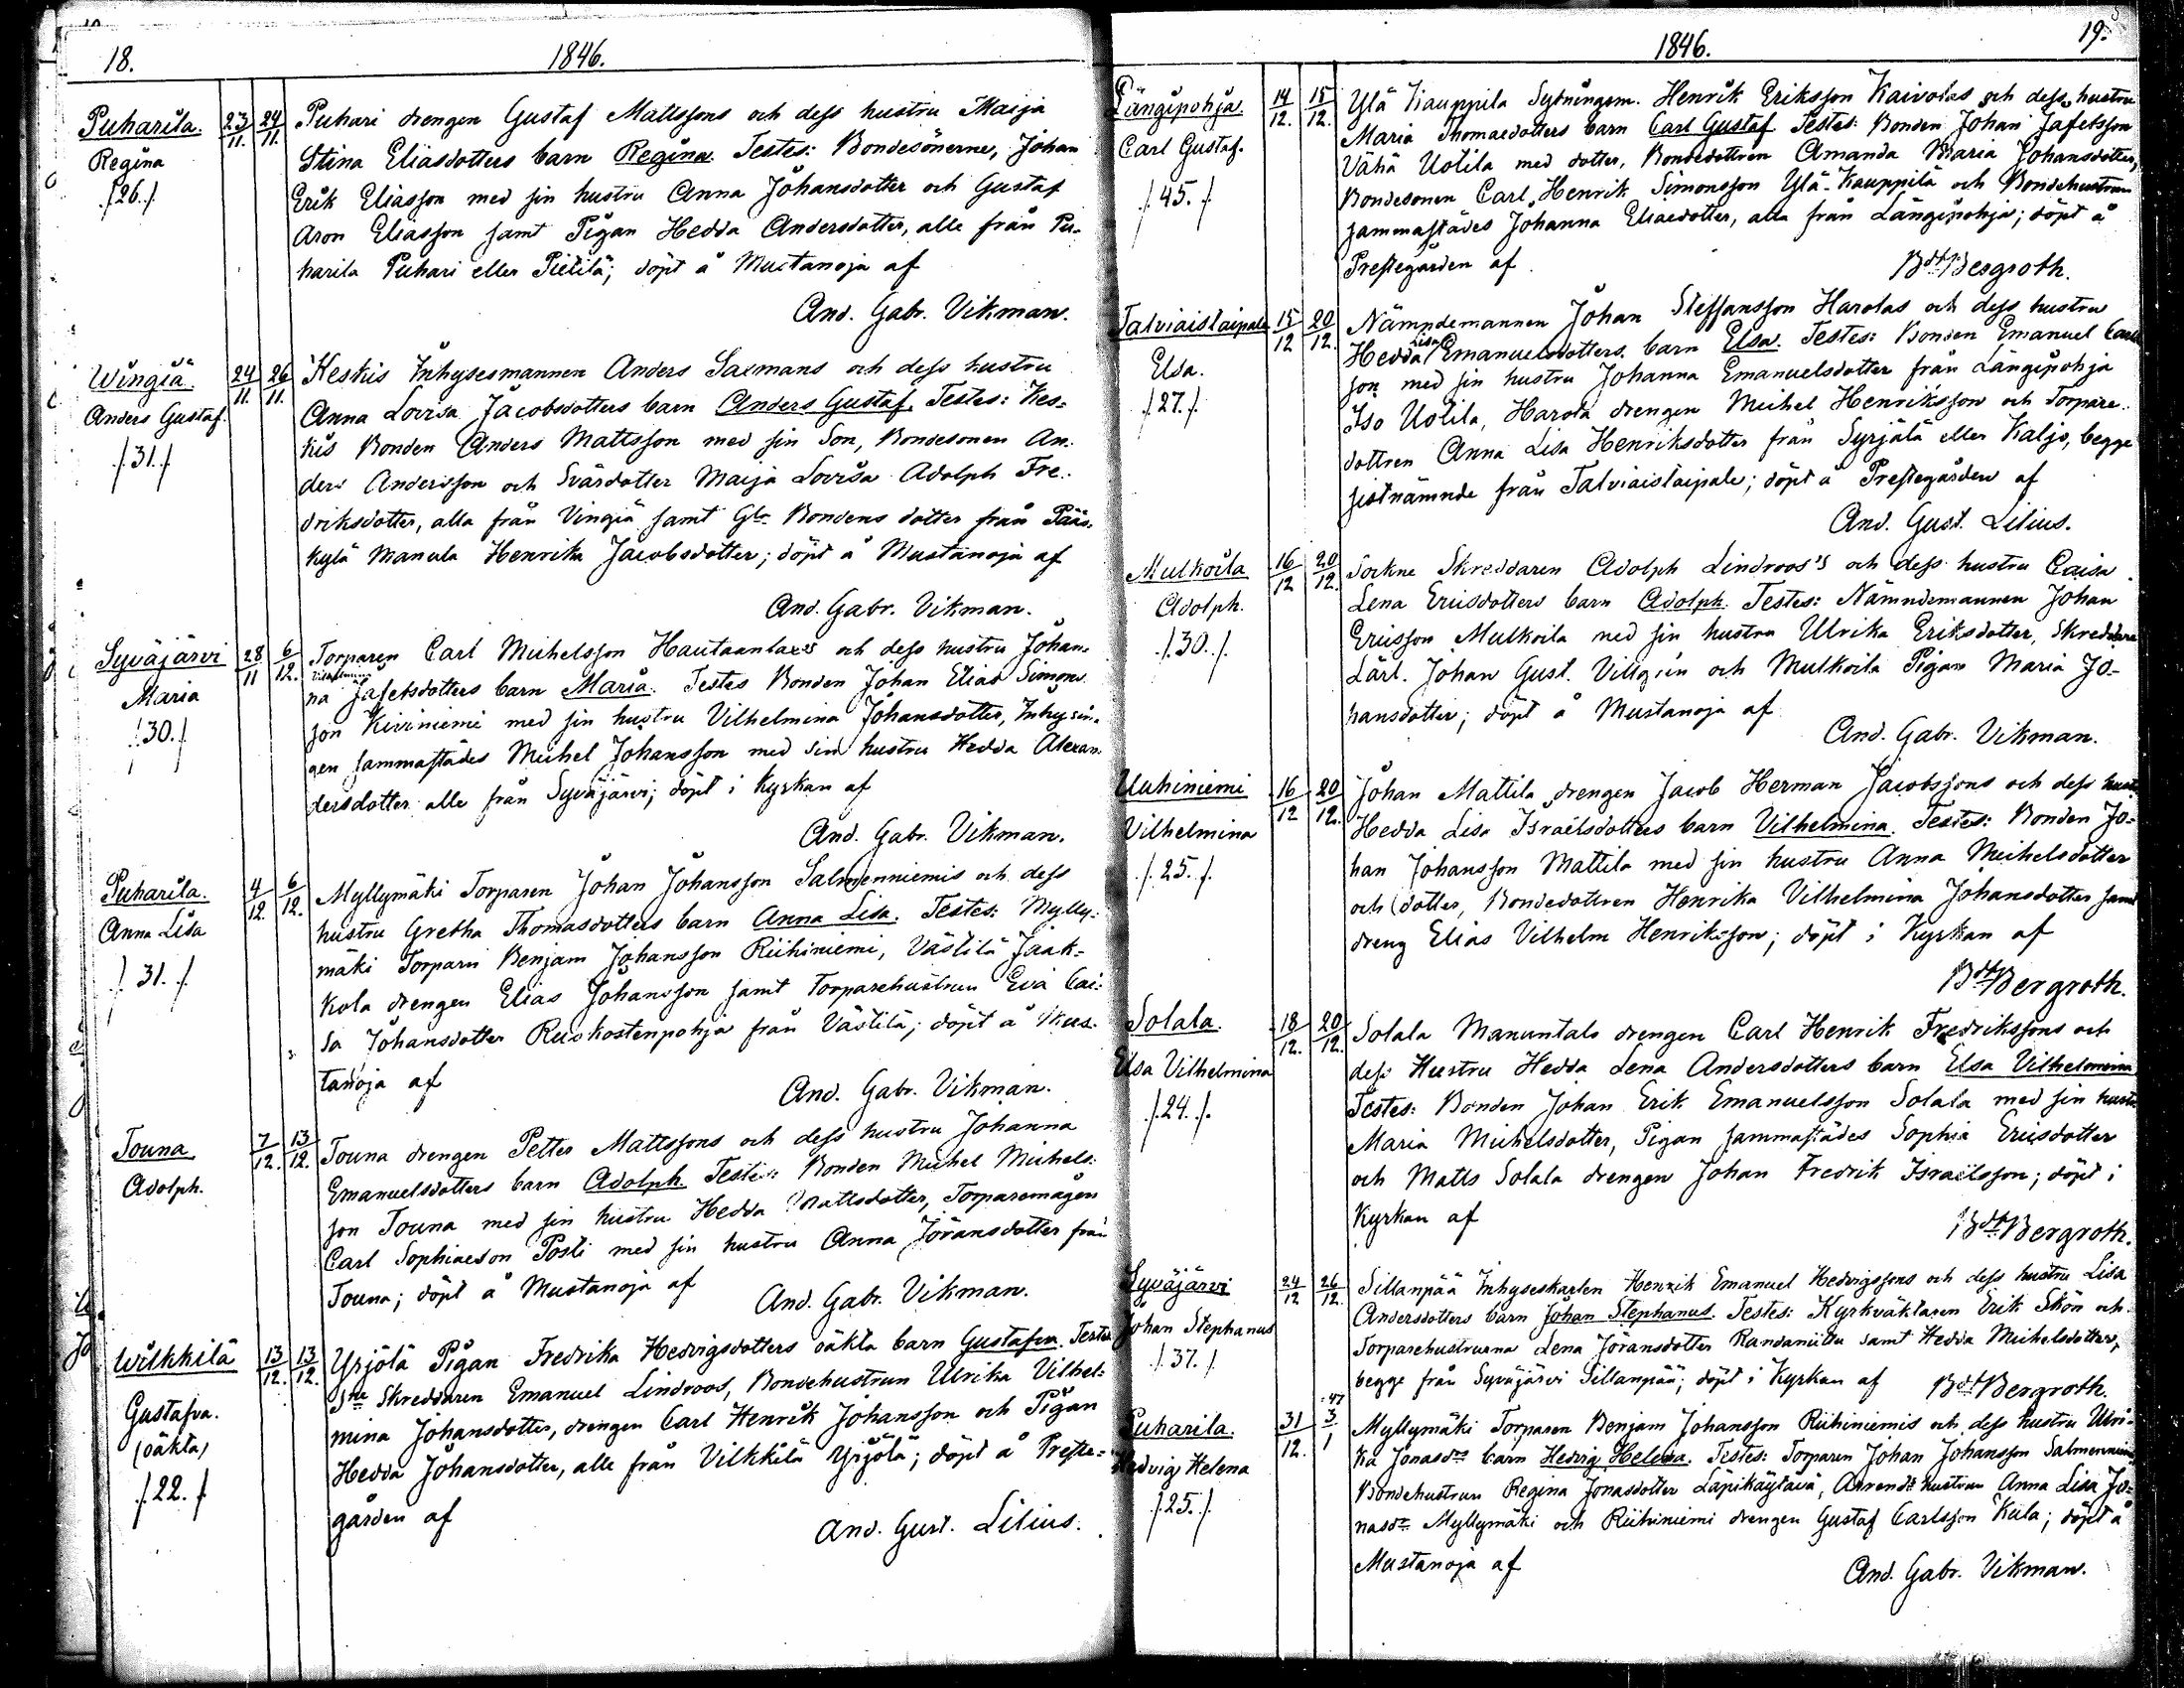 18.
1846.
Puharila.
Regina
/26./
23/11. 24/11.
Puhari drengen Gustaf Mattssons och dess hustru Maija
Stina Eliasdotters barn Regina. Testes: Bondesönerne, Johan
Erik Eliasson med sin hustru Anna Johansdotter och Gustaf
Aron Eliasson samt Pigan Hedda Andersdotter, alle från Pu-
harila Puhari eller Pietilä; döpt å Mustanoja af
And. Gabr. Vikman.
Wingiä.
Anders Gustaf.
/31./
24/11. 26/11.
Keskis Inhysesmannen Anders Saxmans och dess hustru
Anna Lovisa Jacobsdotters barn Anders Gustaf. Testes: Kes-
kis Bonden Anders Mattsson med sin Son, Bondesonen An-
ders Andersson och Svärdotter Maija Lovisa Adolph Fre-
driksdotter, alla från Vingiä samt Gla Bondens dotter från Pääs-
kylä Manula Henrika Jacobsdotter; döpt å Mustanoja af
And. Gabr. Vikman.
Syväjärvi
Maria
/30./
28/11 6/12.
Torparen Carl Michelsson Hautaanlaxs och dess hustru Johan-
na Vilhelmina Jafetsdotters barn Maria. Testes Bonden Johan Elias Simons-
son Kiviniemi med sin hustru Vilhelmina Johansdotter, Inhysin-
gen sammastädes Michel Johansson med sin hustru Hedda Alexan-
dersdotter alle från Syväjärvi; döpt i Kyrkan af
And. Gabr. Vikman.
Puharila.
Anna Lisa
/31./
4/12 6/12.
Myllymäki Torparen Johan Johansson Salmenniemis och dess
hustru Gretha Thomasdotters barn Anna Lisa. Testes: Mylly-
mäki Torparn Benjam Johansson Riihiniemi, Västilä Jaak-
kola drengen Elias Johansson samt Torparehustrun Eva Cai-
sa Johansdotter Ruskostenpohja från Västilä; döpt å Mus-
tanoja af
And. Gabr. Vikman.
Touna
Adolph.
7/12. 13/12.
Touna drengen Petter Mattssons och dess hustru Johanna
Emanuelsdotters barn Adolph. Testes: Bonden Michel Michels-
son Touna med sin hustru Hedda Mattsdotter, Torparemågen
Carl Sophiaeson Posti med sin hustru Anna Jöransdotter från
Touna; döpt å Mustanoja af
And. Gabr. Vikman.
Wilkkilä
Gustafva.
(oäkta)
/22./
13/12. 13/12.
Yrjölä Pigan Fredrika Hedvigsdotters oäkta barn Gustafva. Testes
Sne Skreddaren Emanuel Lindroos, Bondehustrun Ulrika Vilhel-
mina Johansdotter, drengen Carl Henrik Johansson och Pigan
Hedda Johansdotter, alle från Vilkkilä Yrjölä; döpt å Preste-
gården af
And. Gust. Lilius.
1846.
19.
Längipohja.
Carl Gustaf.
/45./
14/12. 15/12.
Ylä Kauppila Sytningsm. Henrik Eriksson Kaivolas och dess hustru
Maria Thomaedotters barn Carl Gustaf Testes: Bonden Johan Jafetsson
Vähä Uotila med dotter, Bondedottren Amanda Maria Johansdotter,
Bondesonen Carl Henrik Simonsson Ylä-Kauppilä och Bondehustrun
sammastädes Johanna Eliaedotter, alla från Längipohja; döpt å
Prestegården af
Bdt Bergroth.
Talviaistaipale
Elsa.
/27./
15/12 20/12.
Nämndemannen Johan Steffansson Harolas och dess hustru
Hedda Lisa Emanuelsdotters barn Elsa. Testes: Bonden Emanuel Carls
son med sin hustru Johanna Emanuelsdotter från Längipohja
Iso Uotila, Harola drengen Michel Henriksson och Torpare-
dottren Anna Lisa Henriksdotter från Syrjälä eller Kaljo, begge
sistnämnde från Talviaistaipale; döpt å Prestegården af
And. Gust. Lilius.
Mulkoila
Adolph.
/30./
16/12 20/12.
Sockne Skreddaren Adolph Lindroos's och dess hustru Caisa
Lena Ericsdotters barn Adolph. Testes: Nämndemannen Johan
Ericsson Mulkoila med sin hustru Ulrika Eriksdotter, Skreddare
Lärl. Johan Gust. Villgrén och Mulkoila Pigan Maria Jo-
hansdotter; döpt å Mustanoja af
And. Gabr. Vikman.
Uuhiniemi
Vilhelmina
/25./
16/12 20/12.
Johan Mattila drengen Jacob Herman Jacobssons och dess hustru
Hedda Lisa Israelsdotters barn Vilhelmina. Testes: Bonden Jo-
han Johansson Mattila med sin hustru Anna Michelsdotter
och dotter, Bondedottren Henrika Vilhelmina Johansdotter samt
dreng Elias Vilhelm Henriksson; döpt i Kyrkan af
Bdt Bergroth.
Solala.
Elsa Vilhelmina
/24./
18/12. 20/12.
Solala Manuntalo drengen Carl Henrik Fredrikssons och
dess Hustru Hedda Lena Andersdotters barn Elsa Vilhelmina
Testes: Bonden Johan Erik Emanuelsson Solala med sin hustru
Maria Michelsdotter, Pigan sammastädes Sophia Ericsdotter
och Matts Solala drengen Johan Fredrik Israelsson; döpt i
Kyrkan af
Bdt Bergroth.
Syväjärvi
Johan Stephanus
/37./
24/12 26/12.
Sillanpää Inhyseskarlen Henrik Emanuel Hedvigssons och dess hustru Lisa
Andersdotters barn Johan Stephanus. Testes: Kyrkväktaren Erik Skön och
Torparehustrurna Lena Jöransdotter Randaniitu samt Hedda Michelsdotter,
begge från Syväjärvi Sillanpää; döpt i Kyrkan af
Bdt Bergroth.
Puharila.
Hedvig Helena
/25./
31/12. 3/1 47
Myllymäki Torparen Benjam Johansson Riihiniemis och dess hustru Ulri-
ka Jonasdr barn Hedvig Helena. Testes: Torparen Johan Johansson Salmenniemi
Bondehustrun Regina Jonasdotter Läpikäytävä, Arrend: hustrun Anna Lisa Jo-
nasdr Myllymäki och Riihiniemi drengen Gustaf Carlsson Kula; döpt å
Mustanoja af
And. Gabr. Vikman.